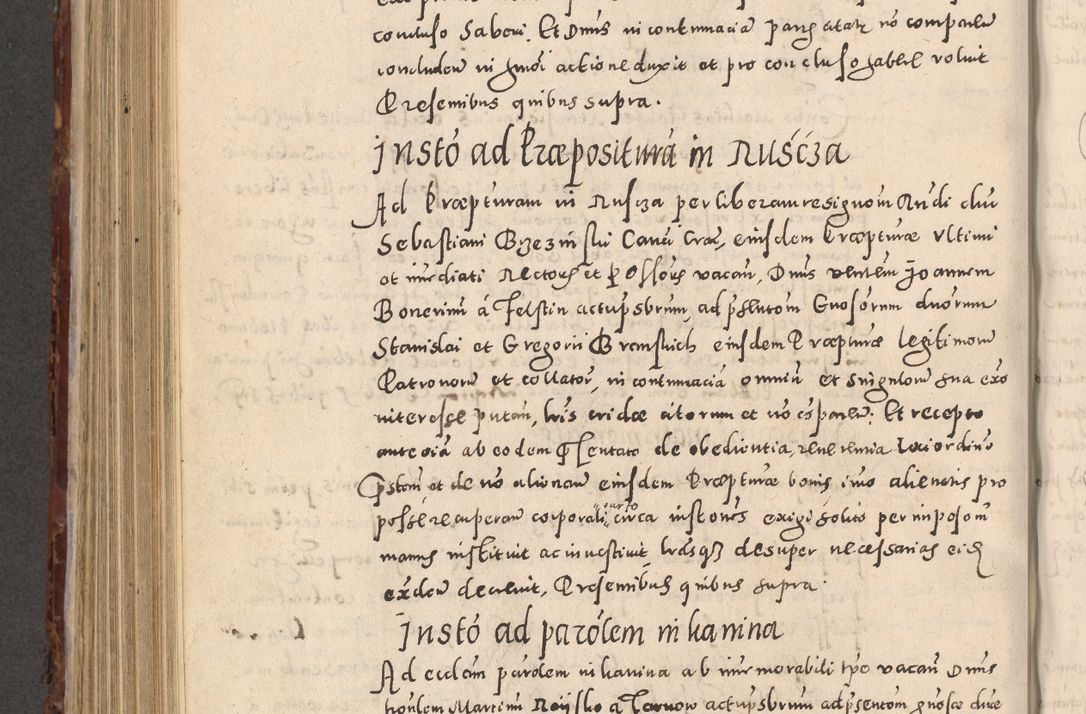 concluso Saberi. Et Dnus in contumacia partis citatae no comparen
concluden in hmoi actione duxit et pro concluso haberi voluit
Presentibus quibus supra.
Insto ad Praepositura in Rusciza
Ad Praepturam in Rusciza per liberam resignom Rndi dni
Sebastiani Brzezinski Canci Crac, eiusdem Praepturae ultimi
et imediati Rectoris et possoris vacan, Dnus venlem Joannem
Bonerinu à Felstin actu psbrum, ad pstutom Gnosorum duorum
Stanislai et Gregorii Branskich eiusdem Praepturae legitimoru
Patronoru et collator, in contumacia omniu et singuloru sua exo
interesse putan, lris cridae citorum et no comparen: Et recepto
ante oia ab eodem psentato de obedientia, reuerentia loci ordino
pstan et de no alienan eiusdem Praepturae bonis imo alienatis pro
posse recuperan corporali circa instones exigi solito iuramto per imposom
manus instituit ac inuestiuit, lrasque desuper necessarias eidem
exden decreuit, Presentibus quibus supra.
Insto ad parolem in kanina
Ad ecclam parolem in kanina ab immemorabili tpe vacan Dnus
honlem Martinu Roysko a Tarnow actu psbrum ad psentom gnosae dnae